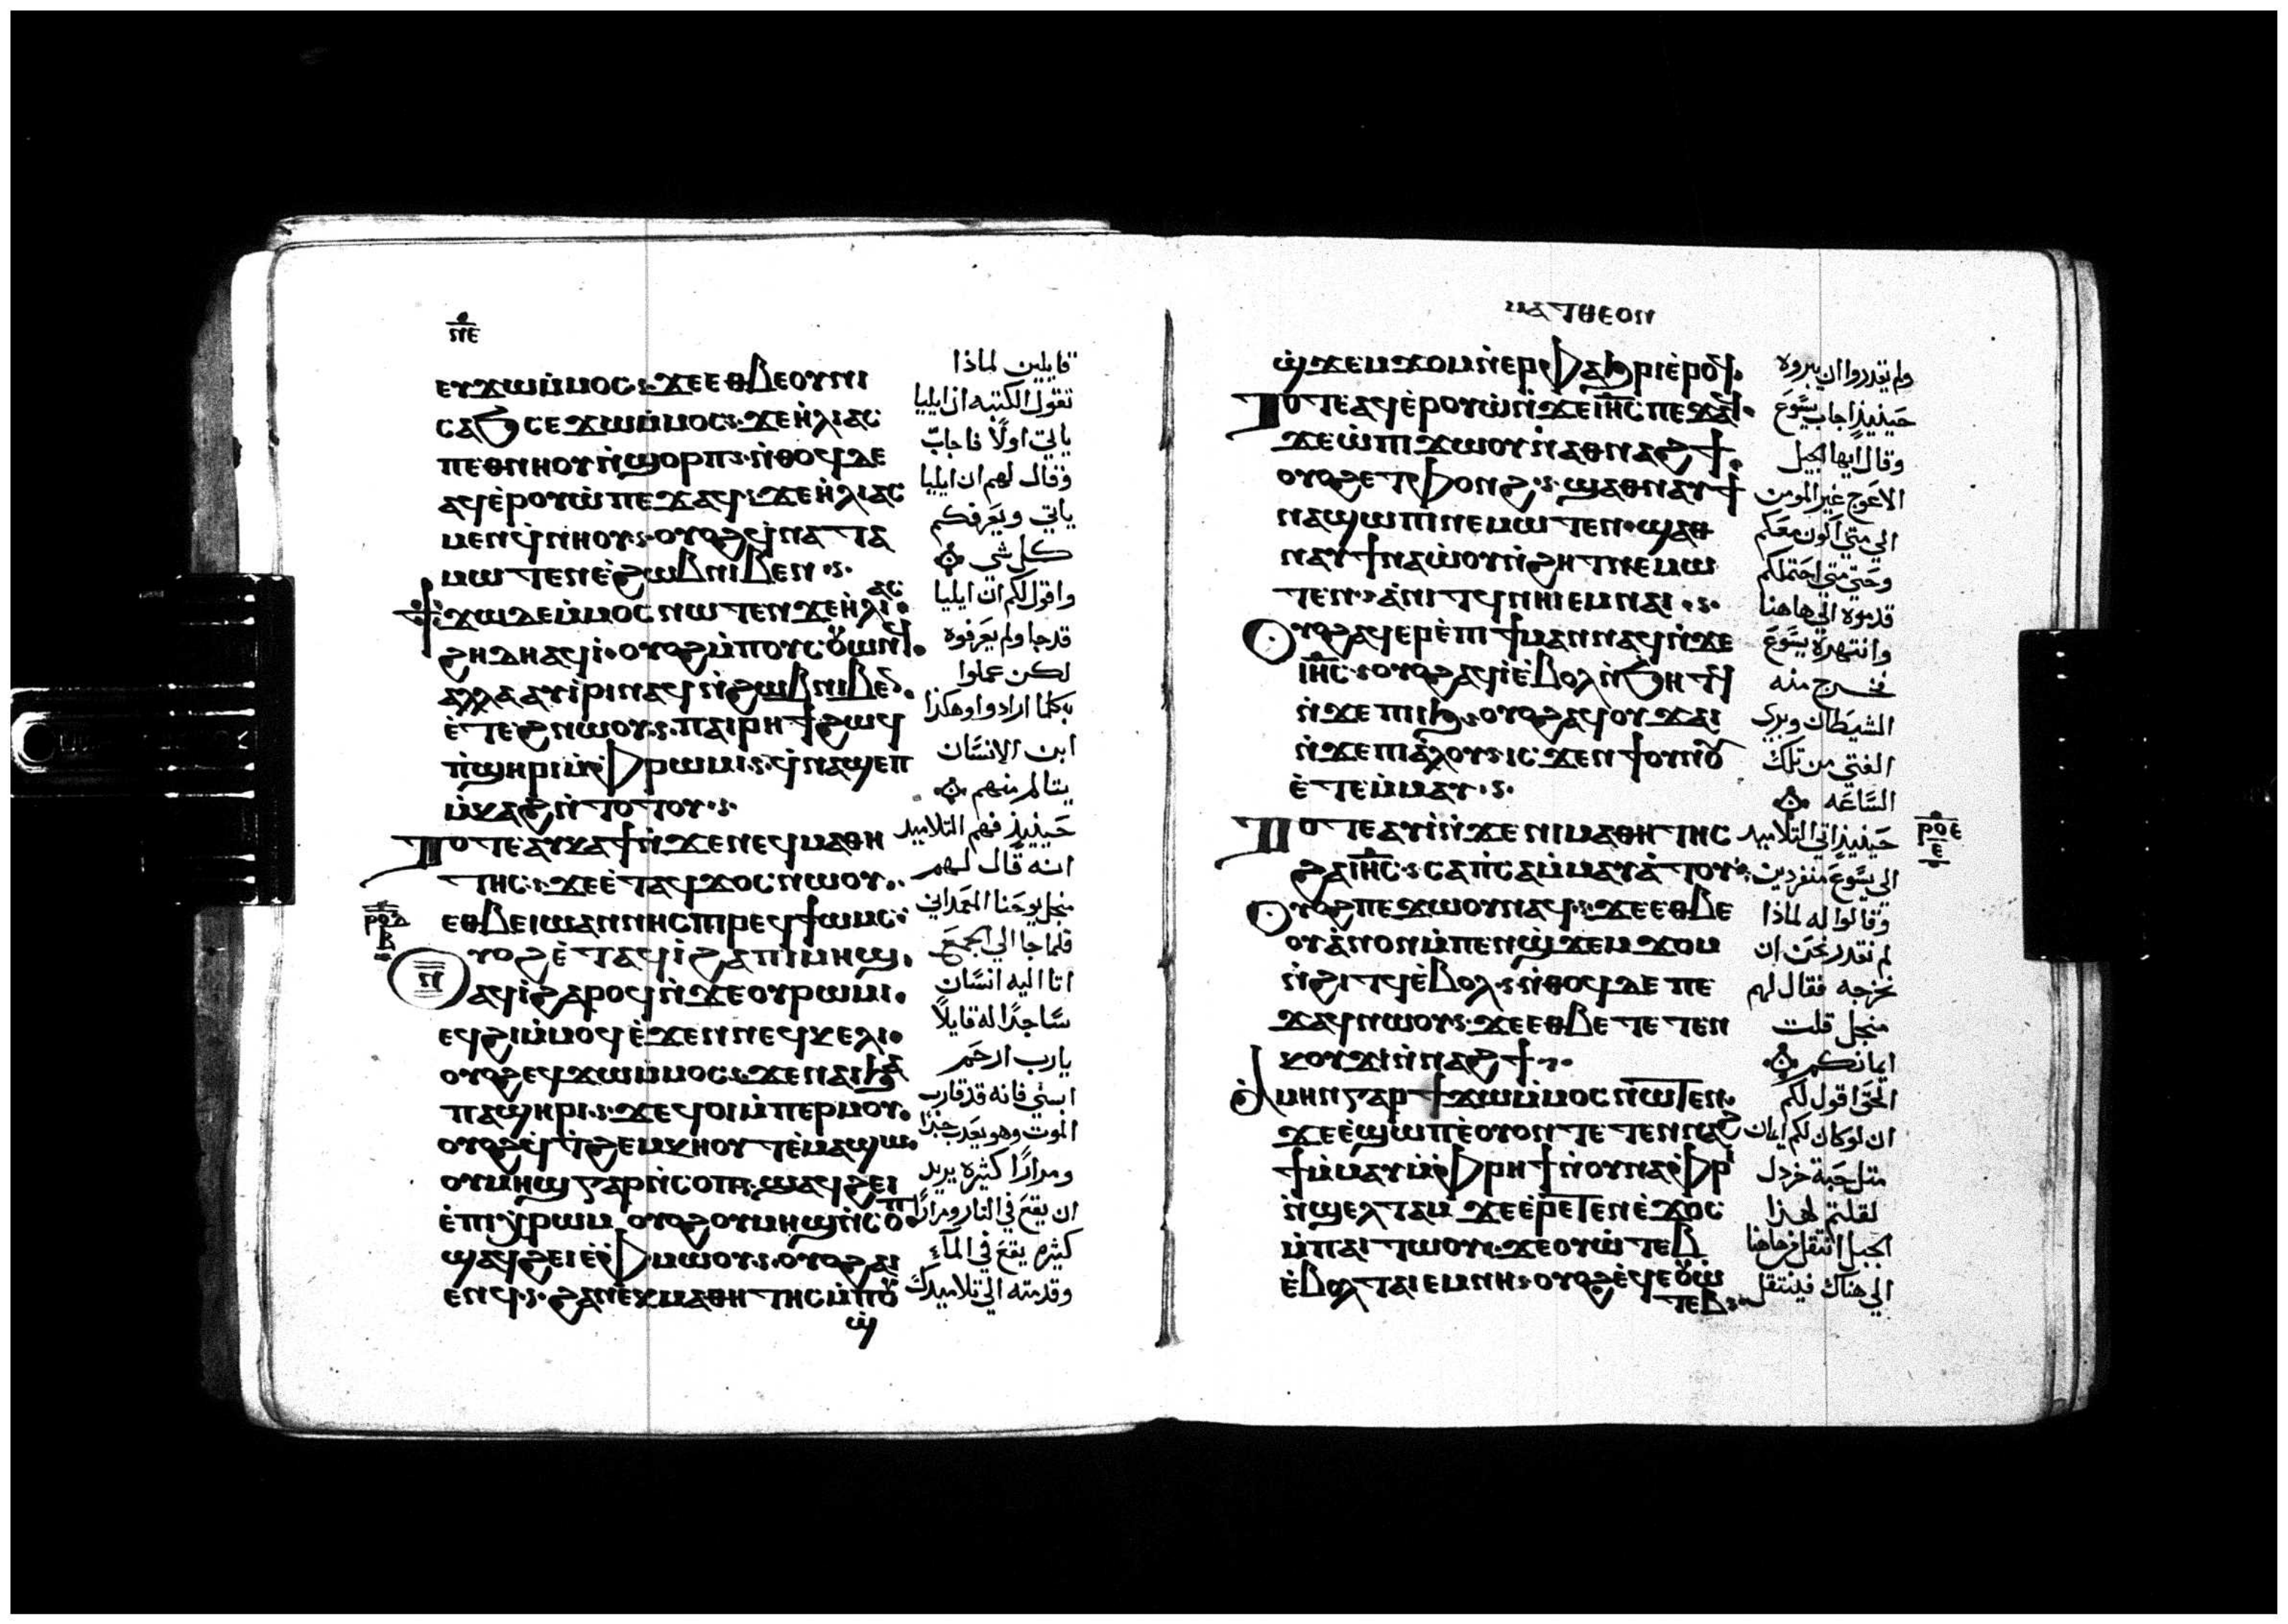 ⲡⲉ
ⲉⲩϫⲱⲙ̀ⲙⲟⲥ ϫⲉⲉⲑⲃⲉⲟⲩⲛⲓ
ⲥⲁϧ ⲥⲉϫⲱⲙ̀ⲙⲟⲥ ϫⲉⲏ̀ⲗⲓⲁⲥ
ⲡⲉⲑⲛⲏⲟⲩ ⲛ̀ϣⲟⲣⲡ ⲛ̀ⲑⲟϥⲇⲉ
ⲁϥⲉ̀ⲣⲟⲩⲱ̀ ⲡⲉϫⲁϥ ϫⲉⲏ̀ⲗⲓⲁⲥ
ⲙⲉⲛ ϥ̀ⲛⲏⲟⲩ ⲟⲩⲟϩ ϥ̀ⲛⲁⲧⲁ
ⲙⲱⲧⲉⲛ ⲉ̀ϩⲱⲃ ⲛⲓⲃⲉⲛ
ϯϫⲱ ⲇⲉ ⲙ̀ⲙⲟⲥ ⲛⲱⲧⲉⲛ ϫⲉⲏ̀ⲗⲓⲁⲥ
ϩⲏⲇⲏ ⲁϥⲓ̀ ⲟⲩⲟϩ ⲙ̀ⲡⲟⲩⲥⲟⲩⲱⲛϥ
ⲁⲗⲗⲁ ⲁⲩⲓ̀ⲣⲓ ⲛⲁϥ ⲛ̀ϩⲱⲃ ⲛⲓⲃⲉⲛ
ⲉ̀ⲧⲉϩⲛⲱⲟⲩ ⲡⲁⲓⲣⲏϯ ϩⲱϥ
ⲡ̀ϣⲏⲣⲓ ⲙ̀ⲫⲣⲱⲙⲓ ϥ̀ⲛⲁϣⲉⲡ
ⲙ̀ⲕⲁϩ ⲛ̀ⲧⲟⲧⲟⲩ
ⲧⲟⲧⲉ ⲁⲩⲕⲁϯ ⲛ̀ϫⲉ ⲛⲉϥⲙⲁⲑⲏ
ⲧⲏⲥ ϫⲉ ⲉ̀ⲧⲁϥϫⲟⲥ ⲛⲱⲟⲩ
ⲉⲑⲃⲉ ⲓⲱⲁⲛⲛⲏⲥ ⲡⲓⲣⲉϥϯⲱⲙⲥ
ⲣⲟⲇ
ⲃ
ⲟⲩⲟϩ ⲉ̀ⲧⲁϥⲓ̀ ϩⲁ ⲡⲓⲙⲏϣ
ⲁϥⲓ̀ ϩⲁⲣⲟϥ ⲛ̀ϫⲉ ⲟⲩⲣⲱⲙⲓ
ⲉϥϩⲓ ⲙ̀ⲙⲟϥ ⲉ̀ϫⲉⲛ ⲛⲉϥⲕⲉⲗⲓ
ⲟⲩⲟϩ ⲉϥϫⲱ ⲙ̀ⲙⲟⲥ ϫⲉ ⲛⲁⲓ ϧⲁ
ⲡⲁϣⲏⲣⲓ ϫⲉ ϥⲟⲓ ⲙ̀ⲡⲉⲣⲙⲟⲩ
ⲟⲩⲟϩ ϥ̀ⲧ̀ϩⲉⲙⲕⲏⲟⲩⲧ ⲉ̀ⲙⲁϣⲱ
ⲟⲩⲙⲏϣ ⲅⲁⲣ ⲛ̀ⲥⲟⲡ ϣⲁϥϩⲉⲓ
ⲉ̀ⲡⲓⲭ̀ⲣⲱⲙ ⲟⲩⲟϩ ⲟⲩⲙⲏϣ ⲛ̀ⲥⲟⲡ
ϣⲁϥϩⲉⲓ ⲉ̀ⲫⲙⲱⲟⲩ ⲟⲩⲟϩ ⲁⲓ
ⲉⲛϥ ϩⲁ ⲛⲉⲕⲙⲁⲑⲏⲧⲏⲥ ⲙ̀ⲡⲟⲩ
ϣ̀
قايلين لماذا
تقول الكتبه ان ايليا
ياتي اولًا فاجاب
وقال لهم ان ايليا
ياتي ويعرفكم
كل شي
واقول لكم ان ايليا
قد جا ولم يعرفوه
لكن عملوا
به كلما ارادوا وهكذا
ابن الانسان
يتالم منهم
حينيذٍ فهم التلاميد
انه قال لهم
منجل يوحنا المعمداني
فلما جا الي الجمع
اتا اليه انسان
ساجدًا له قايلاً
يارب ارحم
ابني فانه قد قارب
الموت وهو يعدب جدًا
ومرارًا كثيره يريد
ان يقع في النار ومرارًا
كثيره يقع في الماء
وقدمته الي تلاميدك
ⲙⲁⲧⲑⲉⲟⲛ
ϣ̀ϫⲉⲙϫⲟⲙ ⲛ̀ⲉⲣⲫⲁϧⲣⲓ ⲉ̀ⲣⲟϥ
ⲧⲟⲧⲉ ⲁϥⲉ̀ⲣⲟⲩⲱ̀ ⲛ̀ϫⲉ ⲓⲏⲥ ⲡⲉϫⲁϥ
ϫⲉ ⲱ̀ ⲡⲓϫⲱⲟⲩ ⲛ̀ⲁⲑⲛⲁϩϯ
ⲟⲩⲟϩ ⲉⲧⲫⲟⲛϩ ϣⲁ ⲑⲛⲁⲩ ϯ
ⲛⲁϣⲱⲡⲓ ⲛⲉⲙⲱⲧⲉⲛ ϣⲁ ⲑ
ⲛⲁⲩ ϯⲛⲁⲱ̀ⲟⲩ ⲛ̀ϩⲏⲧ ⲛⲉⲙⲱ
ⲧⲉⲛ ⲁ̀ⲛⲓⲧϥ ⲛⲏⲓ ⲉⲙⲛⲁⲓ
ⲟⲩⲟϩ ⲁϥⲉⲣⲉ̀ⲡⲓⲧⲓⲙⲁⲛ ⲛⲁϥ ⲛ̀ϫⲉ
ⲓⲏⲥ ⲟⲩⲟϩ ⲁϥⲓ̀ ⲉ̀ⲃⲟⲗ ⲛ̀ϧⲏⲧϥ
ⲛ̀ϫⲉ ⲡⲓⲓϧ ⲟⲩⲟϩ ⲁϥⲟⲩϫⲁⲓ
ⲛ̀ϫⲉ ⲡⲓⲁ̀ⲗⲟⲩ ⲓⲥϫⲉⲛ ϯⲟⲩⲛⲟⲩ
ⲉ̀ⲧⲉⲙ̀ⲙⲁⲩ
ⲧⲟⲧⲉ ⲁⲩⲓ̀ ⲛ̀ϫⲉ ⲛⲓⲙⲁⲑⲏⲧⲏⲥ
ϩⲁ ⲓⲏⲥ ⲥⲁⲡ̀ⲥⲁ ⲙ̀ⲙⲁⲩⲁ̀ⲧⲟⲩ
ⲟⲩⲟϩ ⲡⲉϫⲱⲟⲩ ⲛⲁϥ ϫⲉ ⲉⲑⲃⲉ
ⲟⲩ ⲁ̀ⲛⲟⲛ ⲙ̀ⲡⲉⲛϣ̀ϫⲉⲙϫⲟⲙ
ⲛ̀ϩⲓⲧϥ ⲉ̀ⲃⲟⲗ ⲛ̀ⲑⲟϥ ⲇⲉ ⲡⲉ
ϫⲁϥ ⲛⲱⲟⲩ ϫⲉ ⲉⲑⲃⲉ ⲧⲉⲧⲉⲛ
ⲕⲟⲩϫⲓ ⲛ̀ⲛⲁϩϯ
ⲁ̀ⲙⲏⲛ ⲅⲁⲣ ϯϫⲱ ⲙ̀ⲙⲟⲥ ⲛⲱⲧⲉⲛ
ϫⲉ ⲉ̀ϣⲱⲡ ⲉ̀ⲟⲩⲟⲛⲧⲉⲧⲉⲛ ⲛⲁϩ
ϯ ⲙ̀ⲙⲁⲩ ⲙ̀ⲫⲣⲏϯ ⲛ̀ⲟⲩⲛⲁⲫⲣⲓ
ⲛ̀ϣⲉⲗⲧⲁⲙ ϫⲉ ⲉ̀ⲣⲉⲧⲉⲛⲉ̀ϫⲟⲥ
ⲙ̀ⲡⲁⲓⲧⲱⲟⲩ ϫⲉ ⲟⲩⲱ̀ⲧⲉⲃ
ⲉ̀ⲃⲟⲗ ⲧⲁⲓ ⲉⲙⲛⲏ ⲟⲩⲟϩ ⲉ̀ϥⲉⲟⲩⲱ̀
ⲧⲉⲃ
ولم يقدروا ان يبروه
حينيذٍ اجاب يسوع
وقال ايها الجيل
الاعوج غير المومن
الي متي اكون معكم
وحتي متي احتملكم
قدموه الي هاهنا
وانتهره يسوع
فخرج منه
الشيطان وبري
الفتي من تلك
الساعه
حينيذٍ اتي التلاميد
الي يسوع منفردين
وقالوا له لماذا
لم نقدر نحن ان
نخرجه فقال لهم
منجل قلت
ايمانكم
الحق اقول لكم
ان لو كان لكم ايمان
متل حبة خردل
لقلتم لهذا
الجبل انتقل من هاهنا
الي هناك فينتقل
ⲣⲟⲉ
ⲉ